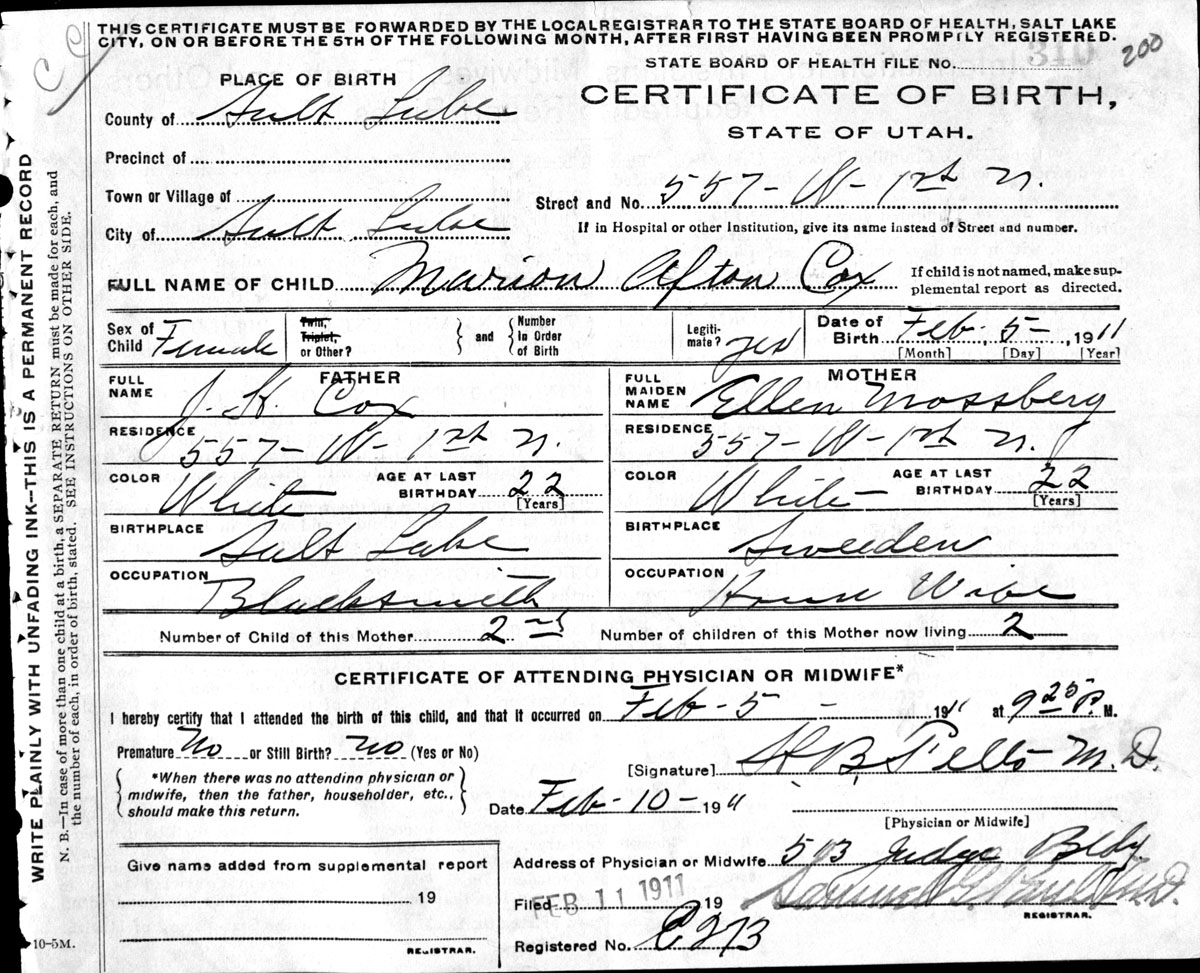 THIS CERTIFICATE MUST BE FORWARDED BY THE LOCAL REGISTRAR TO THE STATE BOARD OF HEALTH, SALT LAKE
CITY, ON OR BEFORE THE 5TH OF THE FOLLOWING MONTH, AFTER FIRST HAVING BEEN PROMPTLY REGISTERED.
200
STATE BOARD OF HEALTH FILE NO.
PLACE OF BIRTH
CERTIFICATE OF BIRTH,
STATE OF UTAH.
County of Salt Lake
Precinct of
Town or Village of
Street and No. 557- W- 1st N.
City of Salt Lake
If in Hospital or other Institution, give its name instead of Street and number.
FULL NAME OF CHILD Marion Afton Cox
If child is not named, make sup-
plemental report as directed.
Sex of Child Female
Twin, Triplet, or Other?
and
Number In Order of Birth
Legiti-mate? yes
Date of Birth Feb. 5- , 1911
[Month] [Day] [Year]
FATHER
FULL NAME J. H. Cox
RESIDENCE 557- W- 1st N.
COLOR White
AGE AT LAST BIRTHDAY 22
[Years]
BIRTHPLACE Salt Lake
OCCUPATION Blacksmith
MOTHER
FULL MAIDEN NAME Ellen Mossberg
RESIDENCE 557- W- 1st N.
COLOR White
AGE AT LAST BIRTHDAY 22
[Years]
BIRTHPLACE Sweeden
OCCUPATION House Wife
Number of Child of this Mother 2nd
Number of children of this Mother now living 2
CERTIFICATE OF ATTENDING PHYSICIAN OR MIDWIFE*
I hereby certify that I attended the birth of this child, and that it occurred on Feb- 5 - 1911 at 9 P. M.
Premature No or Still Birth? No (Yes or No)
*When there was no attending physician or
midwife, then the father, householder, etc.,
should make this return.
[Signature] M.D.
Date Feb-10- 1911
[Physician or Midwife]
Give name added from supplemental report
19
REGISTRAR.
Address of Physician or Midwife 503 Judge Bldg
Filed FEB 11 1911 19
REGISTRAR.
Registered No. C 273
10-5M.
WRITE PLAINLY WITH UNFADING INK--THIS IS A PERMANENT RECORD
N. B.—In case of more than one child at a birth, a SEPARATE RETURN must be made for each, and
the number of each, in order of birth, stated. SEE INSTRUCTIONS ON OTHER SIDE.